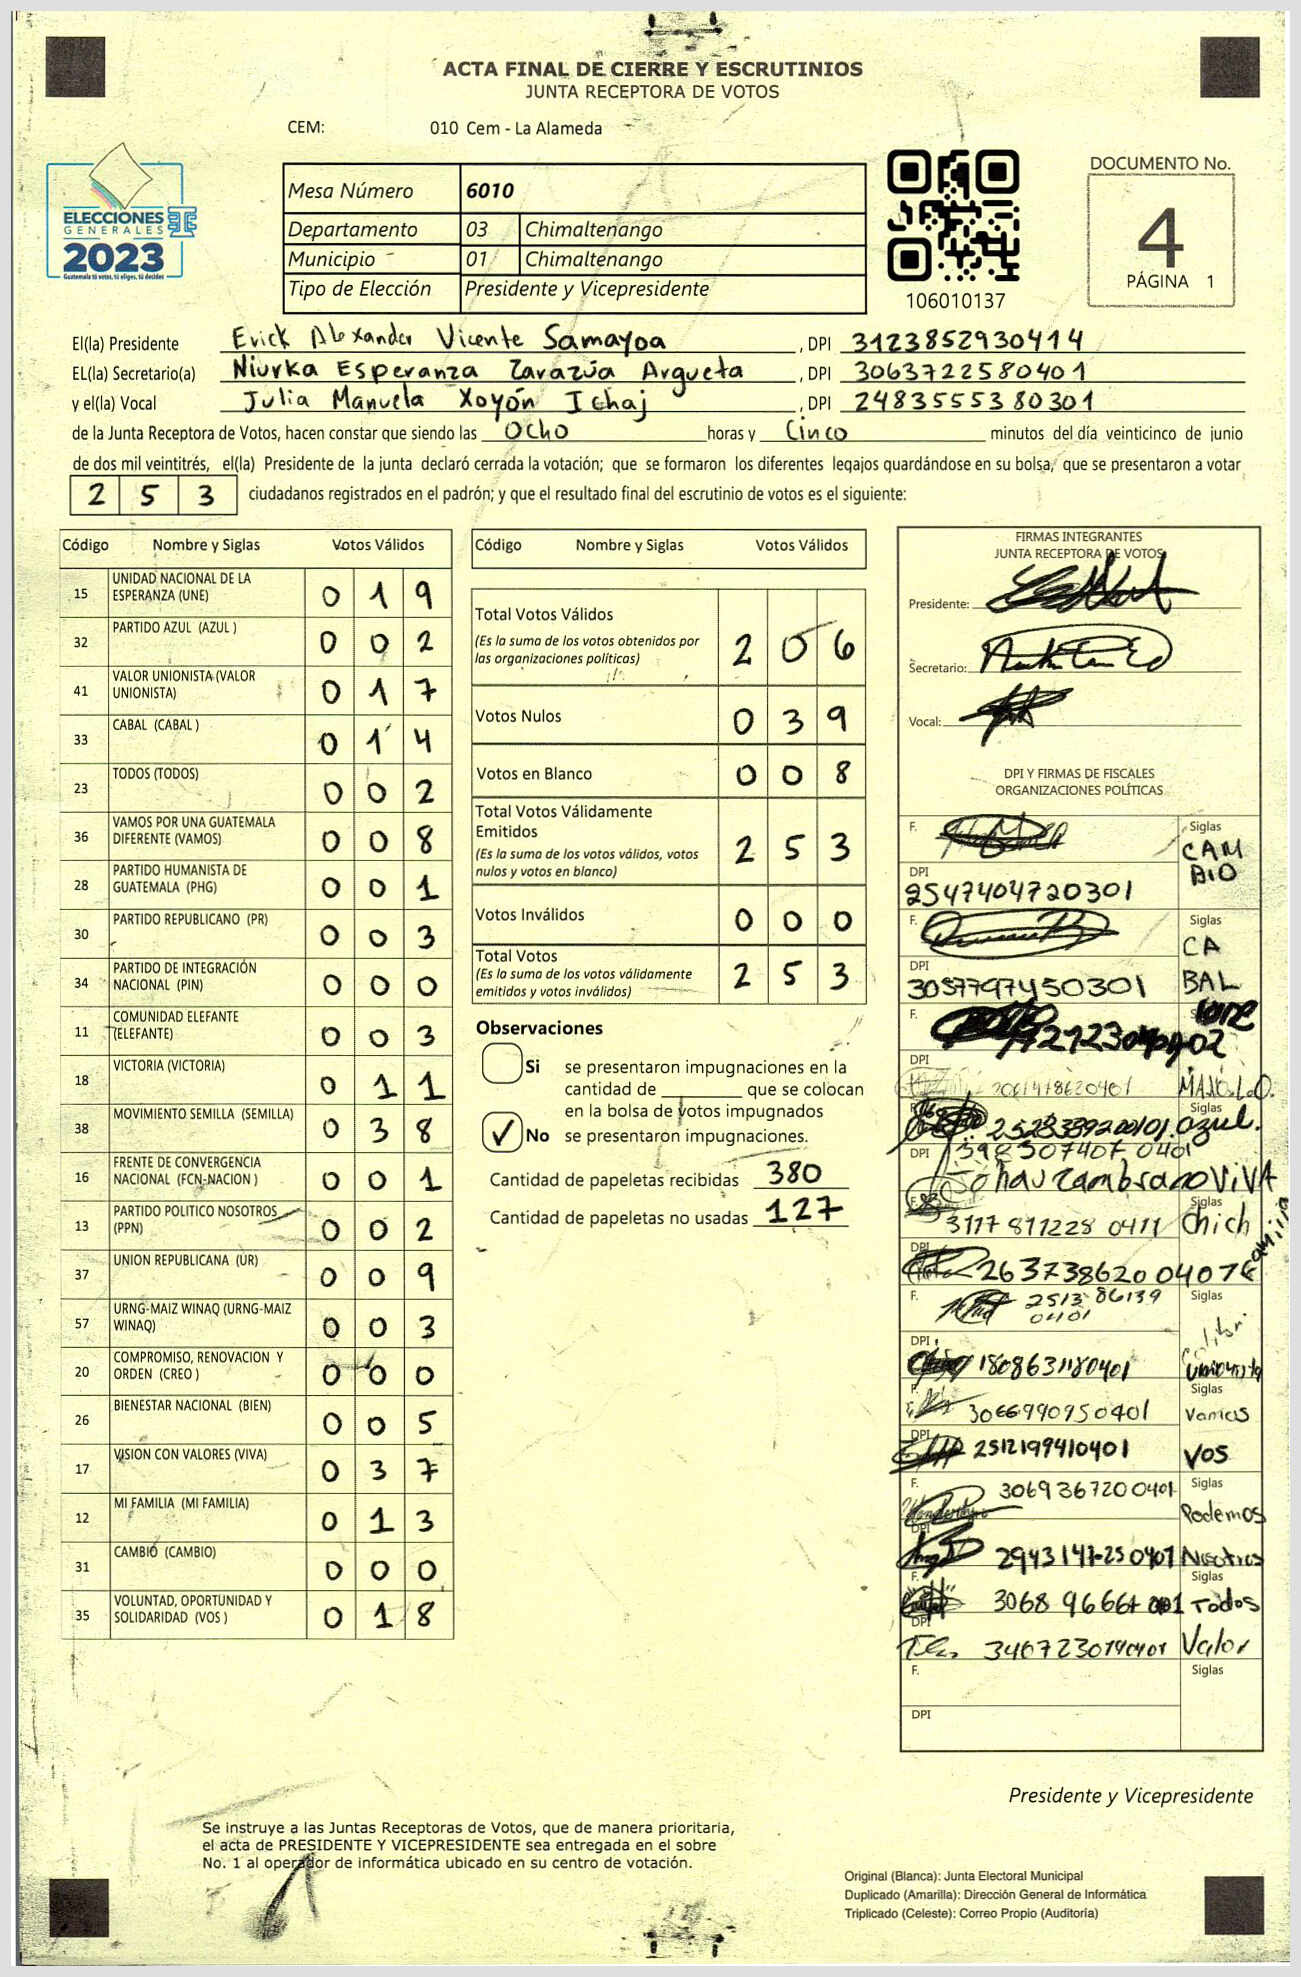 ACTA FINAL DE CIERRE Y ESCRUTINIOS
JUNTA RECEPTORA DE VOTOS
CEM: 010 Cem - La Alameda
ELECCIONES
GENERALES
2023
Guatemala tú votas, tú eliges, tú decides
Mesa Número 6010
Departamento 03 Chimaltenango
Municipio 01 Chimaltenango
Tipo de Elección Presidente y Vicepresidente
106010137
DOCUMENTO No.
4
PÁGINA 1
El(la) Presidente Erick Alexander Vicente Samayoa , DPI 3123852930414
EL(la) Secretario(a) Niurka Esperanza Zarazúa Argueta , DPI 3063722580401
y el(la) Vocal Julia Manuela Xoyón Ichaj , DPI 2483555380301
de la Junta Receptora de Votos, hacen constar que siendo las Ocho horas y Cinco minutos del día veinticinco de junio
de dos mil veintitrés, el(la) Presidente de la junta declaró cerrada la votación; que se formaron los diferentes legajos guardándose en su bolsa, que se presentaron a votar
2 5 3 ciudadanos registrados en el padrón; y que el resultado final del escrutinio de votos es el siguiente:
Código Nombre y Siglas Votos Válidos
15 UNIDAD NACIONAL DE LA ESPERANZA (UNE) 0 1 9
32 PARTIDO AZUL (AZUL ) 0 0 2
41 VALOR UNIONISTA (VALOR UNIONISTA) 0 1 7
33 CABAL (CABAL ) 0 1 4
23 TODOS (TODOS) 0 0 2
36 VAMOS POR UNA GUATEMALA DIFERENTE (VAMOS) 0 0 8
28 PARTIDO HUMANISTA DE GUATEMALA (PHG) 0 0 1
30 PARTIDO REPUBLICANO (PR) 0 0 3
34 PARTIDO DE INTEGRACIÓN NACIONAL (PIN) 0 0 0
11 COMUNIDAD ELEFANTE (ELEFANTE) 0 0 3
18 VICTORIA (VICTORIA) 0 1 1
38 MOVIMIENTO SEMILLA (SEMILLA) 0 3 8
16 FRENTE DE CONVERGENCIA NACIONAL (FCN-NACION ) 0 0 1
13 PARTIDO POLITICO NOSOTROS (PPN) 0 0 2
37 UNION REPUBLICANA (UR) 0 0 9
57 URNG-MAIZ WINAQ (URNG-MAIZ WINAQ) 0 0 3
20 COMPROMISO, RENOVACION Y ORDEN (CREO ) 0 0 0
26 BIENESTAR NACIONAL (BIEN) 0 0 5
17 VISION CON VALORES (VIVA) 0 3 7
12 MI FAMILIA (MI FAMILIA) 0 1 3
31 CAMBIO (CAMBIO) 0 0 0
35 VOLUNTAD, OPORTUNIDAD Y SOLIDARIDAD (VOS ) 0 1 8
Código Nombre y Siglas Votos Válidos
Total Votos Válidos 2 0 6
(Es la suma de los votos obtenidos por las organizaciones políticas)
Votos Nulos 0 3 9
Votos en Blanco 0 0 8
Total Votos Válidamente Emitidos 2 5 3
(Es la suma de los votos válidos, votos nulos y votos en blanco)
Votos Inválidos 0 0 0
Total Votos 2 5 3
(Es la suma de los votos válidamente emitidos y votos inválidos)
Observaciones
Si se presentaron impugnaciones en la
cantidad de ________ que se colocan
en la bolsa de votos impugnados
✓ No se presentaron impugnaciones.
Cantidad de papeletas recibidas 380
Cantidad de papeletas no usadas 127
FIRMAS INTEGRANTES
JUNTA RECEPTORA DE VOTOS
Presidente:
Secretario:
Vocal:
DPI Y FIRMAS DE FISCALES
ORGANIZACIONES POLÍTICAS
F. Siglas
CAM
BIO
DPI
2547404720301
F. Siglas
CA
DPI
3057797450301 BAL
F.
DPI
2061478620401
Siglas
azul.
DPI
VIVA
Siglas
3117 811228 0411 Chich
DPI
2637386200407
F. 2513 86139 Siglas
0401
DPI
1808631180401 Unionista
F. Siglas
3066990950401 Vamos
DPI
2512199410401 VOS
F. 3069367200401 Siglas
Podemos
DPI
Nosotros
F. Siglas
Todos
DPI
Valor
F. Siglas
DPI
Presidente y Vicepresidente
Se instruye a las Juntas Receptoras de Votos, que de manera prioritaria,
el acta de PRESIDENTE Y VICEPRESIDENTE sea entregada en el sobre
No. 1 al operador de informática ubicado en su centro de votación.
Original (Blanca): Junta Electoral Municipal
Duplicado (Amarilla): Dirección General de Informática
Triplicado (Celeste): Correo Propio (Auditoría)